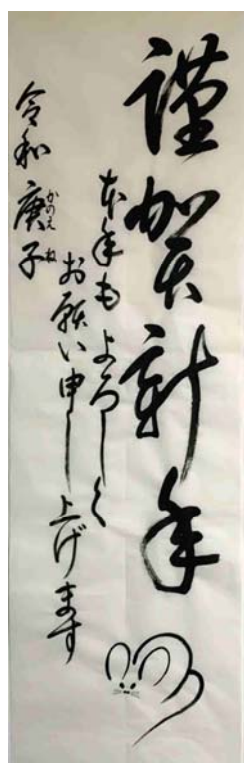 謹賀新年
本年もよろしく
お願い申し上げます
令和庚子
かのえ ね